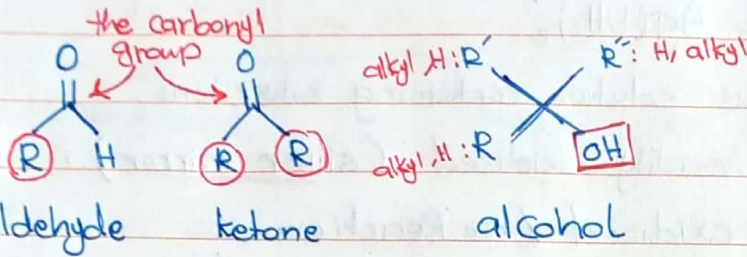 the carbonyl
group
O O
alkyl, H : R' R'' : H, alkyl
R H R R alkyl, H : R OH
ldehyde ketone alcohol